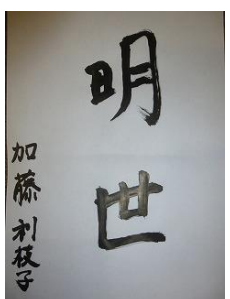 明世
加藤利枝子